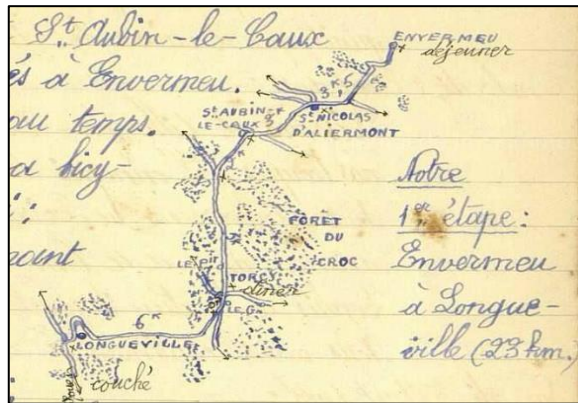 St. Aubin-le-Caux
és à Envermeu.
au temps.
a bicy-
nant
ENVERMEU
déjeuner
3K,5
ST NICOLAS
D'ALIERMONT
ST AUBIN-
LE-CAUX
3
FORÊT
DU
CROC
LE PIT
TORCY
dîner
LE G
6K
LONGUEVILLE
couché
Notre
1er étape:
Envermeu
à Longue-
ville (23 km.)